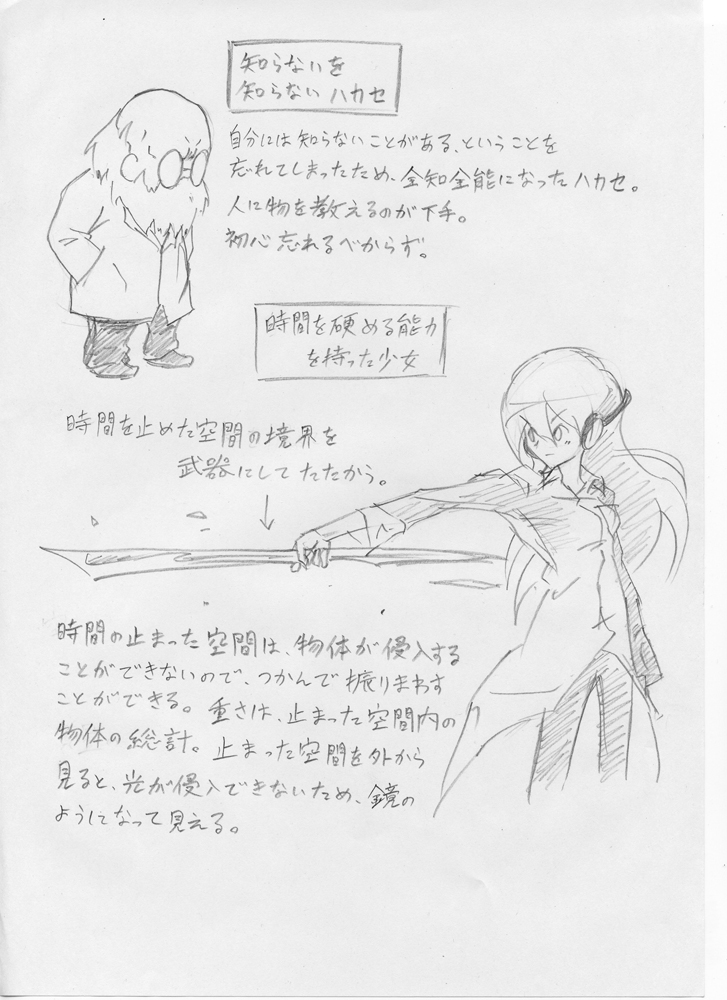 知らないを
知らない ハカセ
自分には知らないことがある、ということを
忘れてしまったため、全知全能になったハカセ。
人に物を教えるのが下手。
初心忘れるべからず。
時間を硬める能力
を持った少女
時間を止めた空間の境界を
武器にしてたたかう。
時間の止まった空間は、物体が侵入する
ことができないので、つかんで振りまわす
ことができる。重さは、止まった空間内の
物体の総計。止まった空間を外から
見ると、光が侵入できないため、鏡の
ようになって見える。